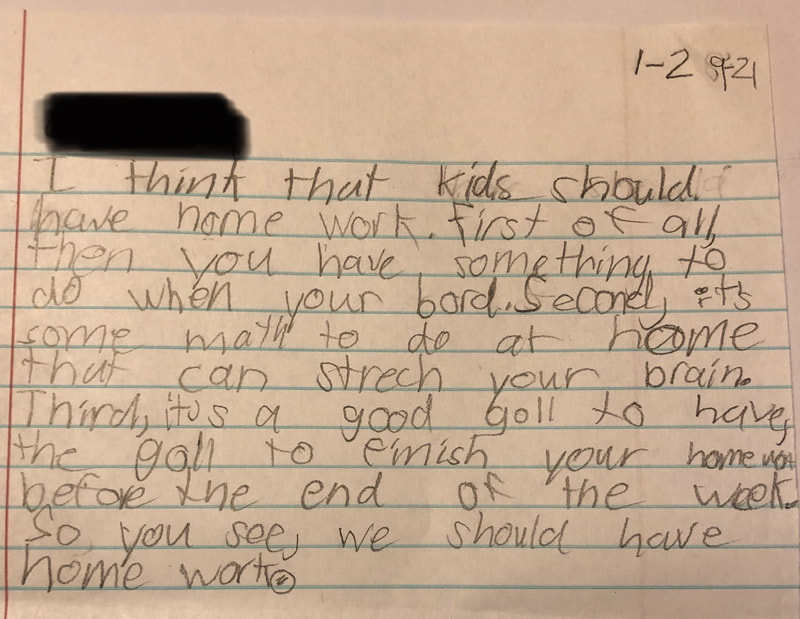 1-2 9-21
I think that kids should
have home work. First of all,
then you have something to
do when your bord. Second, it's
some math to do at home
that can strech your brain.
Third, it's a good goll to have,
the goll to finish your home work
before the end of the week.
So you see, we should have
home work.